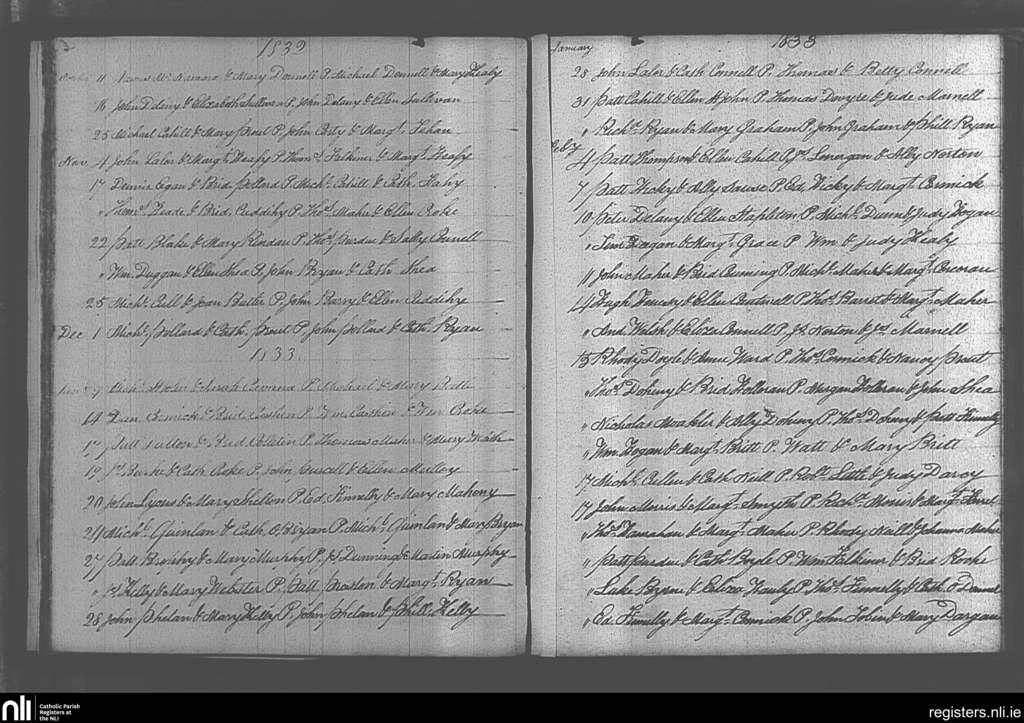 1832
11 James McNamara & Mary Donnell P. Michael Donnell & Mary Healy
16 John Delany & Elizabeth Sullivan P. John Delany & Ellen Sullivan
25 Michael Cahill & Mary Prout P. John Carty & Margt. Fahan
Nov 4 John Lalor & Margt. Heafy P. Thoms. Falkiner & Margt. Heafy
17 Dennis Egan & Brid. Pollard P. Michl. Cahill & Cath. Fahy
" Thoms. Reade & Brid. Cuddihy P. Thos. Maher & Ellen Roke
22 Patt Blake & Mary P. Thos. Purdue & Sally
" Wm. Duggan & Ellen Shea P. John Bryan & Cath Shea
25 Michl. Cull & Joan Butler P. John Barry & Ellen Cuddihy
Dec 1 Michl. Pollard & Cath. Prout P. John Pollard & Cath. Ryan
1833.
7 P. Michael & Mary
14 Dan Cormick & Brid. P.
17 Patt & Brid P. Thomas Maher &
19 Burke & Cath. P. John & Ellen
20 John Lyons & Mary Shelton P. Ed. Kennelly & Mary Mahony
21 Michl. Quinlan & Cath. O.Bryan P. Michl. Quinlan & Mary Bryan
27 Patt. Brophy & Mary Murphy P. Js. Dunning & Martin Murphy
" Kelly & Mary Webster P. Patt & Margt. Ryan
28 John Phelan & Mary Kelly P. John Phelan & Phill. Kelly
January 1833
28 John Lalor & Cath Connell P. Thomas & Betty Connell
31 Patt Cahill & Ellen St John P. Thomas Dwyre & Jude Marnell
" Richd. Ryan & Mary Graham P. John Graham & Phill Ryan
Feby 4 Patt Thompson & Ellen Cahill P. Js. Lonergan & Ally Norton
7 Patt Hicky & Ally P. Ed. Hicky & Margt. Cormick
10 Peter Delany & Ellen Stapleton P. Michl. Dunn & Judy Hogan
" & Margt. Grace P. Wm & Judy Healy
11 John Maher & Brid Cuming P. Michl. Maher & Margt. Corcoran
14 Hugh & Ellen Cantwell P. Thos. Barret & Margt. Maher
" And. Walsh & Eliza Connell P. Js. Norton & Js. Marnell
15 Rhody Doyle & Anne Ward P. Thos. Cormick & Nancy Prout
Thos. Doheny & Brid Holleran P. Morgan Holleran & John Shea
" Nicholas & Ally Doheny P. Thos. Doheny & Patt Kennelly
" Wm. Hogan & Margt. Britt P. Watt & Mary Britt
17 Michl. Cullen & Cath Neill P. Robt. Little & Judy Darcy
17 John Morris & Margt. Smyth P. Richd. Morris & Margt.
" Thos. Damahan & Margt. Maher P. Rhody Naill & Johanna Maher
" Patt Purdue & Cath Boyle P. Wm Falkiner & Brid Rorke
" Luke Bryan & Eliza P. Thos. Fennelly & Cath. O Donnel
" Ed. Kennelly & Margt. Cormick P. John Tobin & Mary Dargan
nli Catholic Parish
Registers at
the NLI
registers.nli.ie